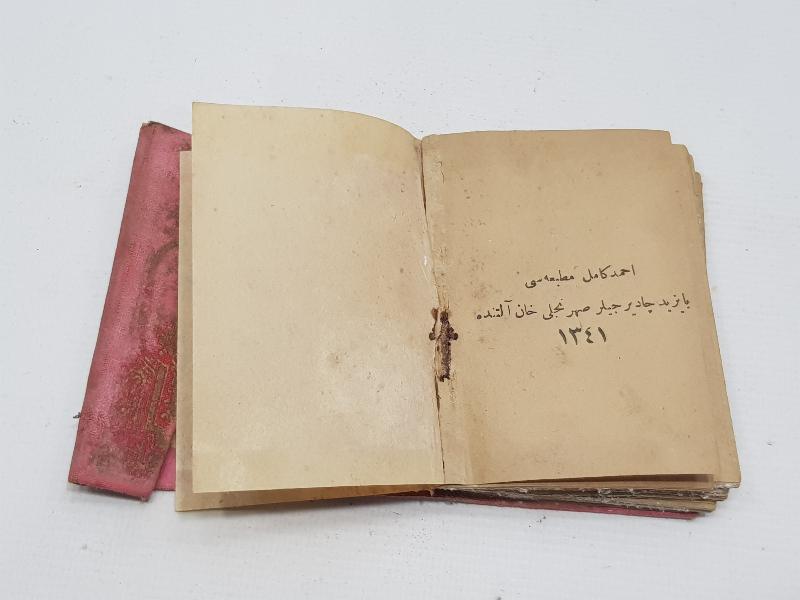 احمد كامل مطبعه سی
بايزيد چاديرجيلر صهرنجلی خان آلتنده
١٣٤١